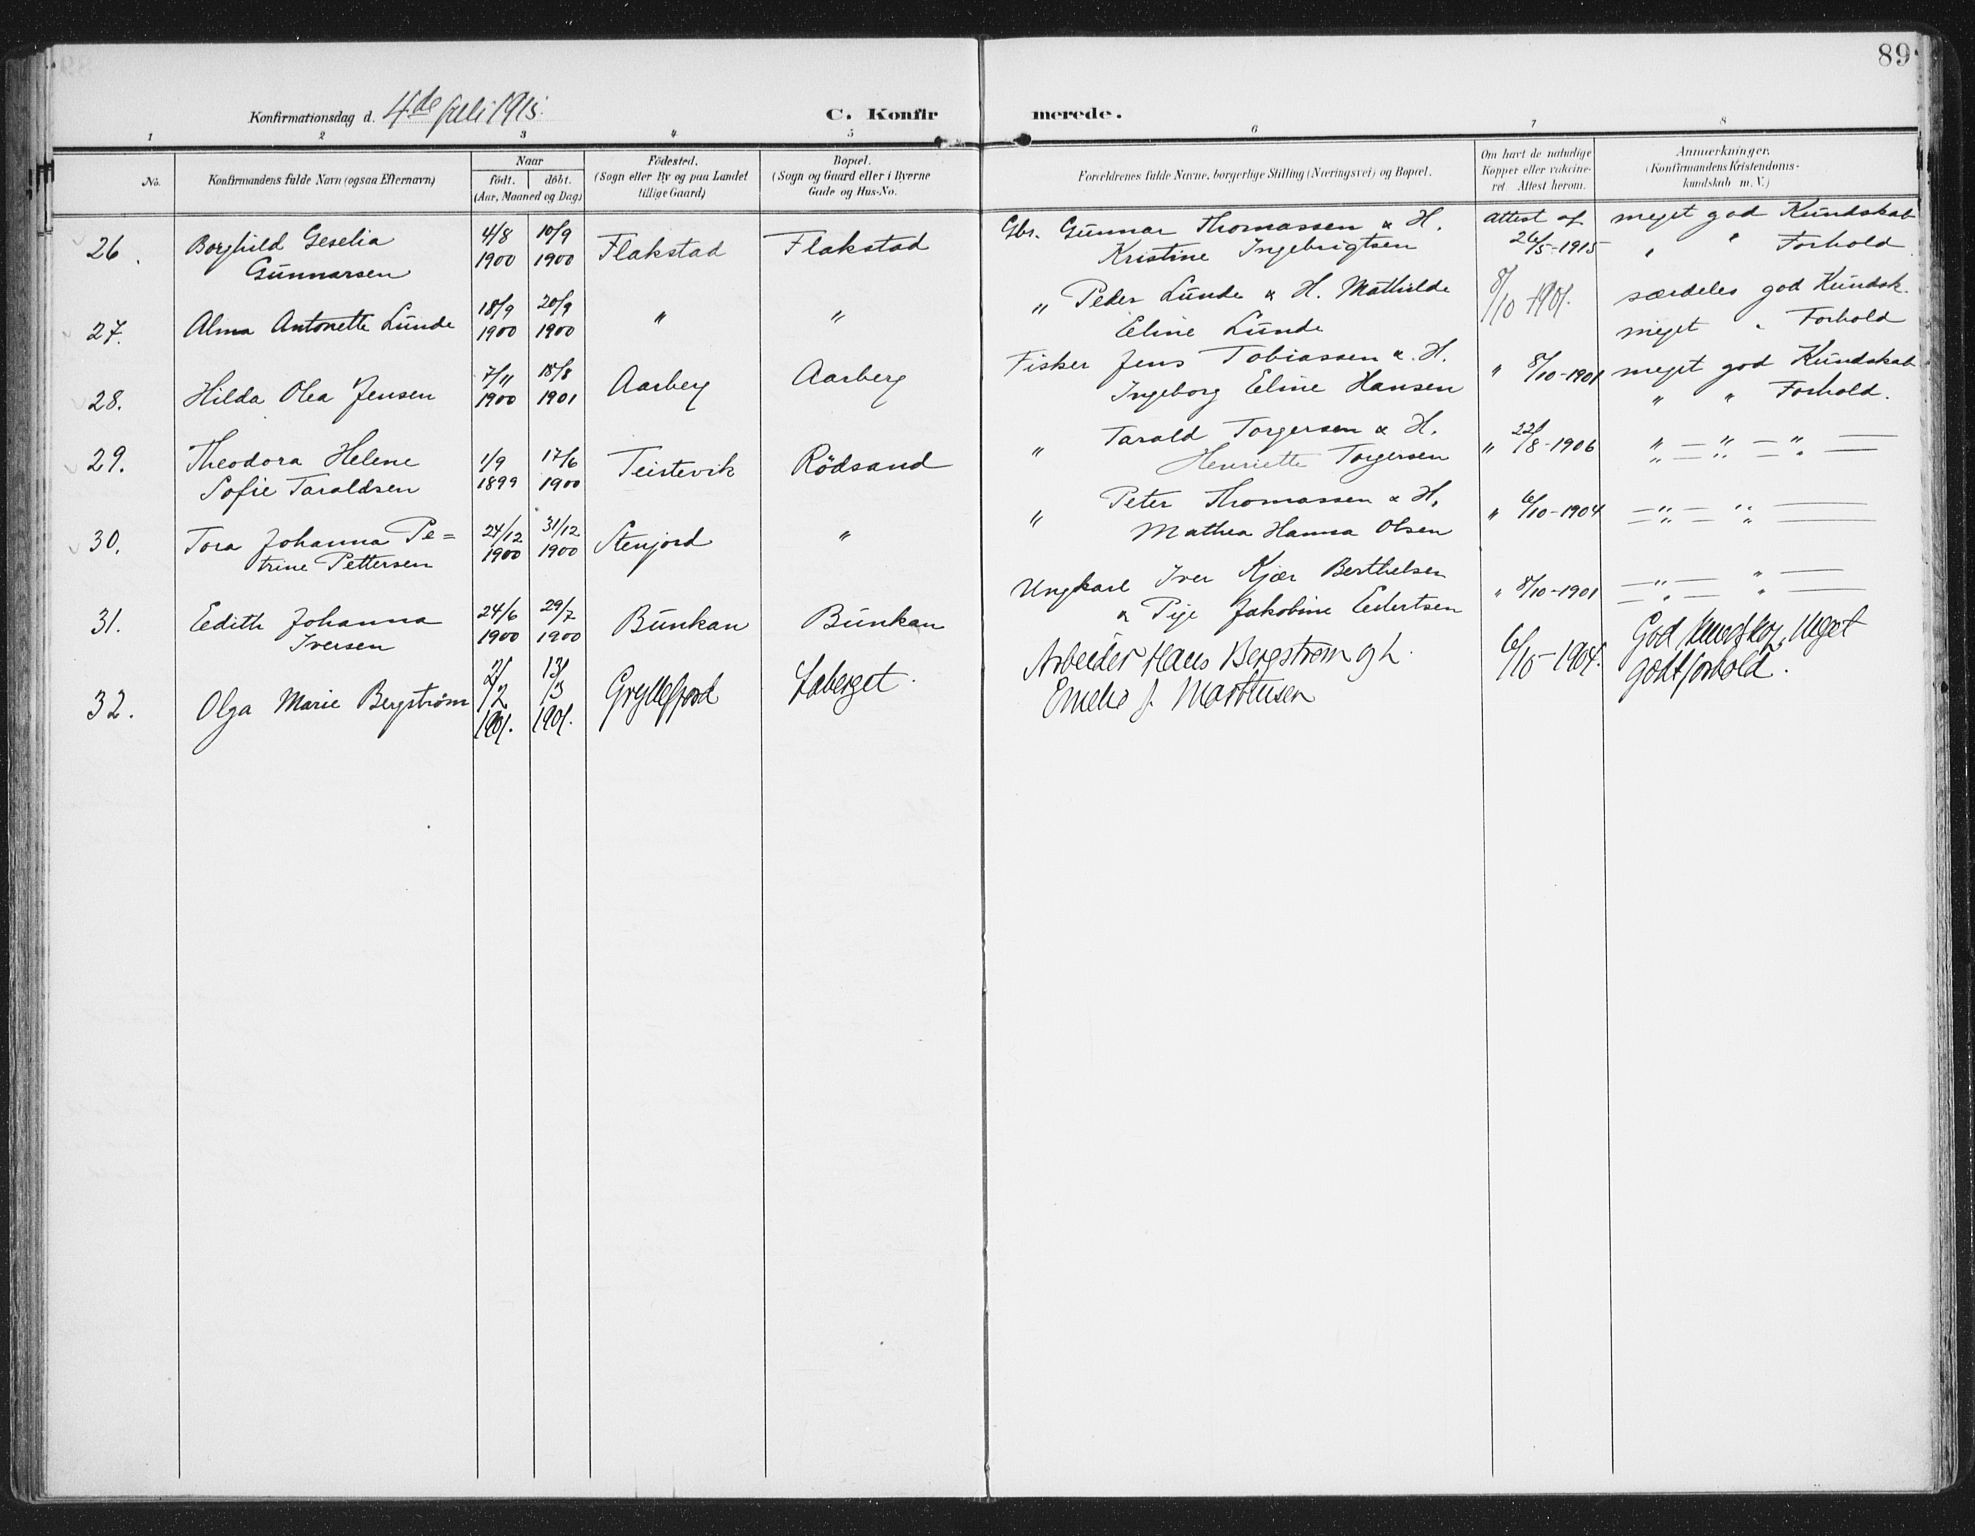 89
Konfirmationsdag d. 4de juli 1915.
C. Konfirmerede.
1 2 3 4 5 6 7 8
No.
Konfirmandens fulde Navn (ogsaa Efternavn)
Naar
födt. döbt.
(Aar, Maaned og Dag)
Födested.
(Sogn eller By og paa Landet
tillige Gaard)
Bopæl.
(Sogn og Gaard eller i Byerne
Gade og Hus-No.
Forældrenes fulde Navne, borgerlige Stilling (Næringsvei) og Bopæl.
Om havt de naturlige
Kopper eller vakcine-
ret Attest herom.
Anmærkninger.
(Konfirmandens Kristendoms-
kundskab m. V.)
26. Borghild Geselia 4/8 10/9 Flakstad Flakstad Gbr. Gunnar Thomassen & H. Attest af meget god Kundskab
Gunnarsen 1900 1900 Kristine Ingebrigtsen 26/5-1915 " " Forhold
27. Alma Antonette Lunde 18/9 20/9 " " " Peder Lunde & H. Mathilde 8/10 1901. særdeles god Kundsk.
1900 1900 Eline Lunde meget " Forhold
28. Hilda Olea Jensen 7/11 18/8 Aarberg Aarberg Fisker Jens Tobiassen & H. " 8/10-1901 meget god Kundskab
1900 1901 Ingeborg Eline Hansen " " Forhold.
29. Theodora Helene 1/9 17/6 Teistevik Rödsand " Tarald Torgersen & H. " 22/8-1906 " — " — " —
Sofie Taraldsen 1899 1900 Henriette Torgersen " — " — " —
30. Tora Johanna Pe= 24/12 31/12 Stenjord " " Peter Thomassen & H. " 6/10-1904 — " — " —
trine Pettersen 1900 1900 Mathea Hanna Olsen — " — " —
31. Edith Johanna 24/6 29/7 Bunkan Bunkan Ungkarl Iver Kjær Berthelsen " 8/10-1901 — " — " —
Iversen 1900 1900 & Pige Jakobine Edertsen — " — " —
32. Olga Marie Bergström 2/2 13/3 Gryllefjord Laberget. Arbeider Hans Bergstrøm og h. 6/10-1904. God kundskap. Meget
1901. 1901. Emelie J. Marthinsen godt forhold.